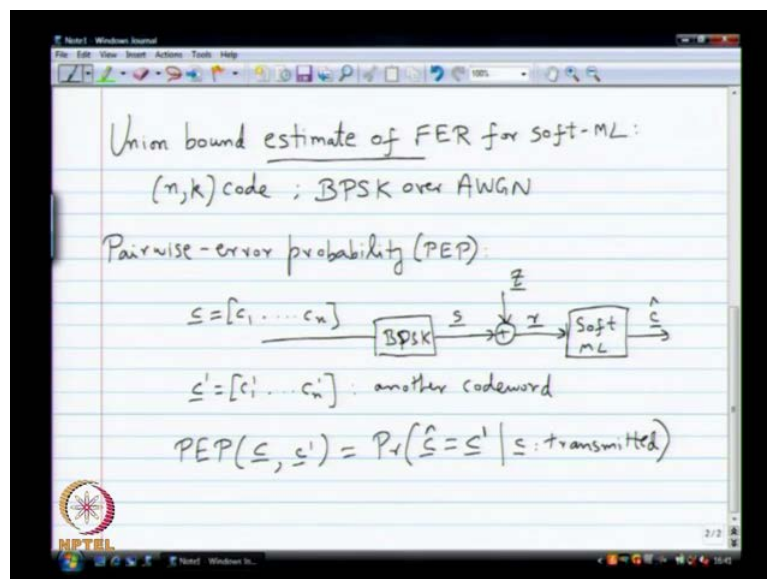 Note1 - Windows Journal
File Edit View Insert Actions Tools Help
100%
Union bound estimate of FER for soft-ML:
(n,k) code ; BPSK over AWGN
Pairwise-error probability (PEP):
z
c = [c1 .... cn] BPSK s + r Soft ML ĉ
c' = [c1' ... cn'] : another codeword
PEP(c, c') = Pr(ĉ = c' | c : transmitted)
2/2
NPTEL
Note1 - Windows Jo...
16:41